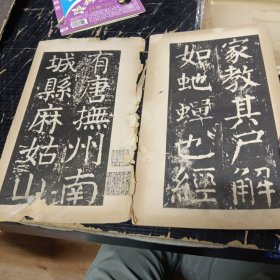 家教其尸解
如虵蟬也經
有唐撫州南
城縣麻姑山